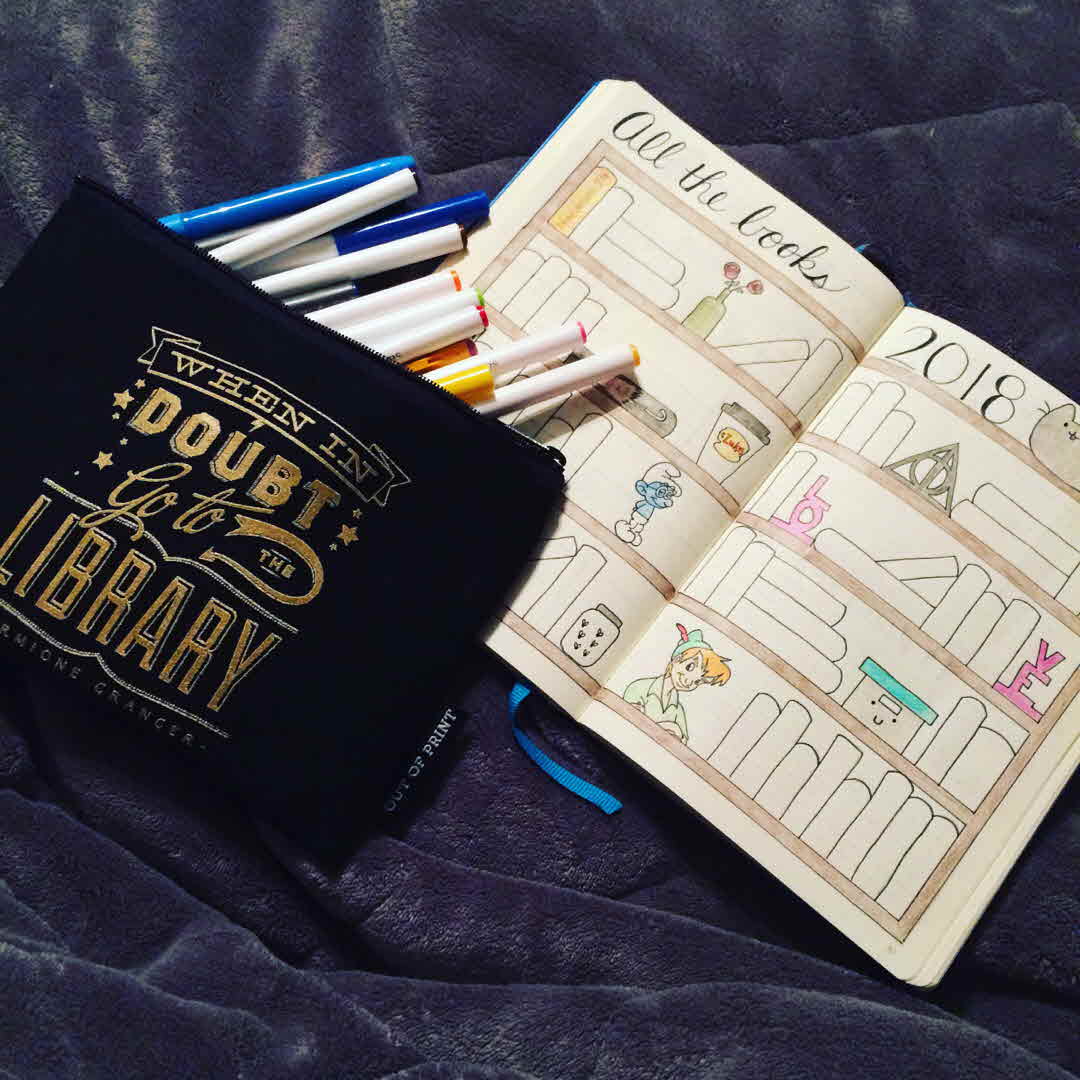 WHEN IN
DOUBT
Go to
THE
LIBRARY
RMIONE GRANGER-
OUT OF PRINT
All the books
2018
Luke's